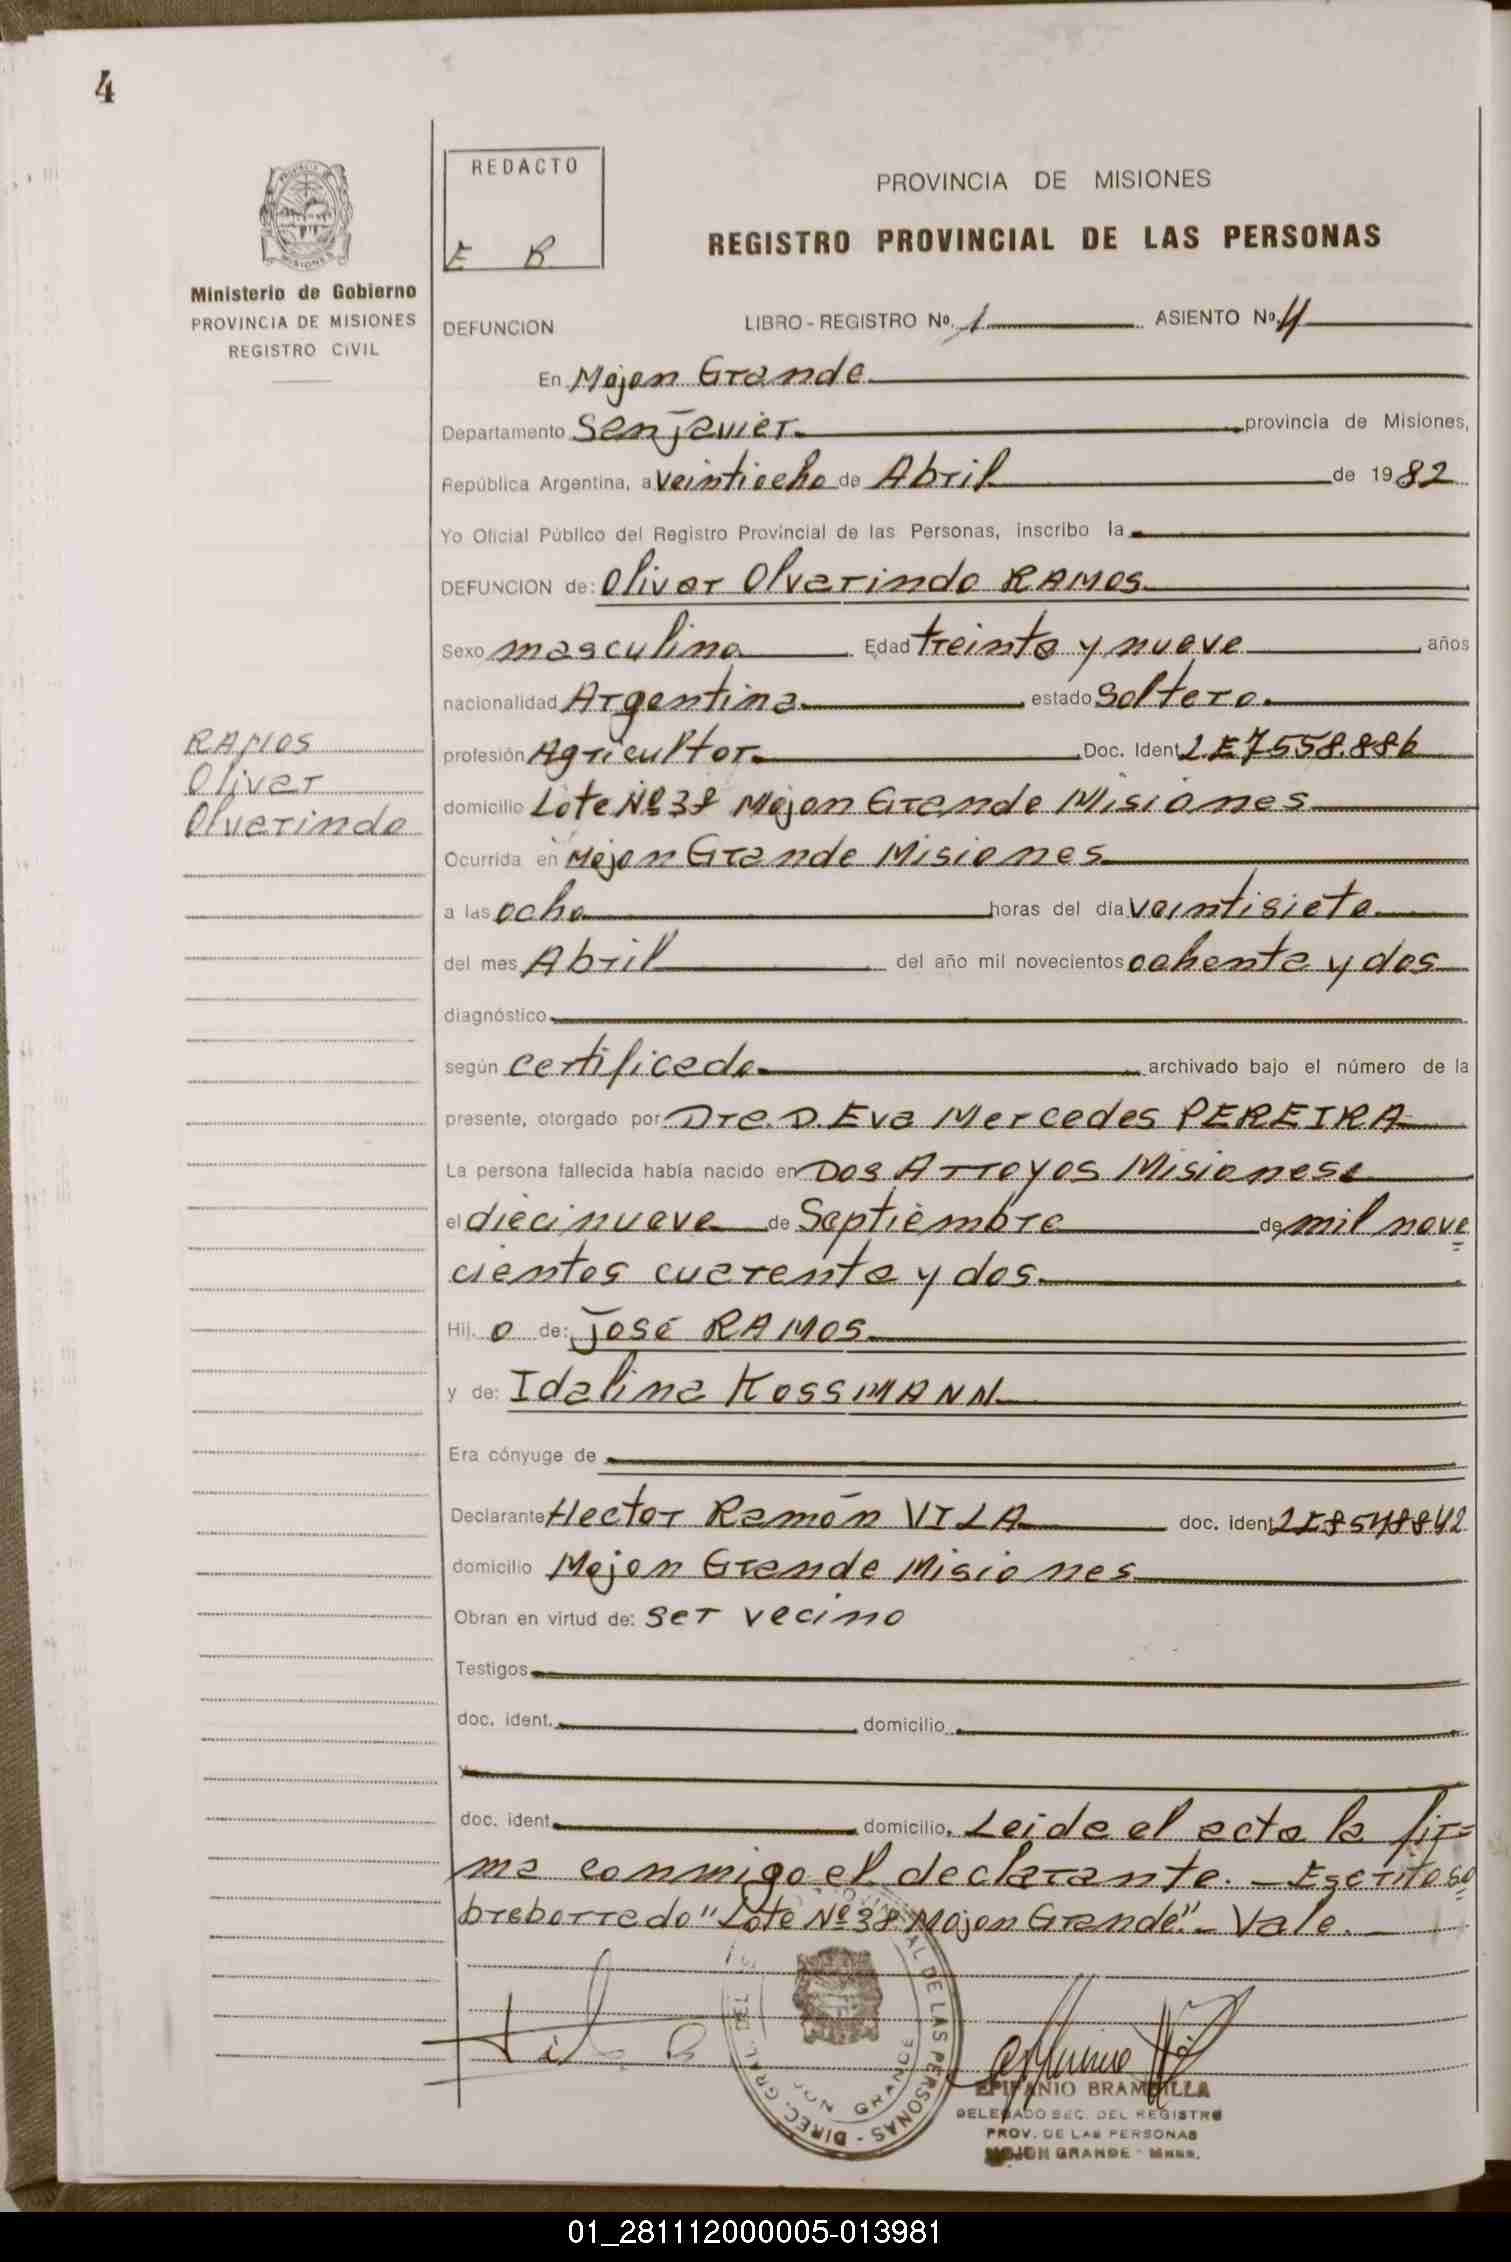 4
REDACTO
E B
PROVINCIA DE MISIONES
REGISTRO PROVINCIAL DE LAS PERSONAS
MISIONES
Ministerio de Gobierno
PROVINCIA DE MISIONES
REGISTRO CIVIL
DEFUNCION LIBRO - REGISTRO Nº. 1 ASIENTO Nº. 4
En Mojon Grande
Departamento San Javier. provincia de Misiones,
República Argentina, a veintiocho de Abril de 1982
Yo Oficial Público del Registro Provincial de las Personas, inscribo la
DEFUNCION de: Olivar Olvarindo RAMOS
Sexo masculino Edad treinta y nueve años
nacionalidad Argentina estado Soltero.
profesión Agricultor Doc. Ident LE7558.886
RAMOS
Olivar
Olvarindo
domicilio Lote Nº38 Mojon Grande Misiones
Ocurrida en Mojon Grande Misiones
a las ocho horas del día veintisiete
del mes Abril del año mil novecientos ochenta y dos
diagnóstico
según certificado archivado bajo el número de la
presente, otorgado por Dra. D. Eva Mercedes PEREIRA
La persona fallecida había nacido en Dos Arroyos Misiones
el diecinueve de Septiembre de mil nove=
cientos cuarenta y dos
Hij. o de: José RAMOS
y de: Idalina KOSSMANN
Era cónyuge de
Declarante Hector Ramón VILA doc. ident LE8548842
domicilio Mojon Grande Misiones
Obran en virtud de: ser vecino
Testigos
doc. ident. domicilio
y
doc. ident. domicilio. Leida el acta la fir=
ma conmigo el declarante. - Escrito so=
breborrado "Lote Nº38 Mojon Grande" - Vale.
DIREC. GRAL. DE LAS PERSONAS
GRANDE
EPIFANIO BRAMBILLA
DELEGADO SEC. DEL REGISTRO
PROV. DE LAS PERSONAS
MOJON GRANDE - Mnes.
01_281112000005-013981